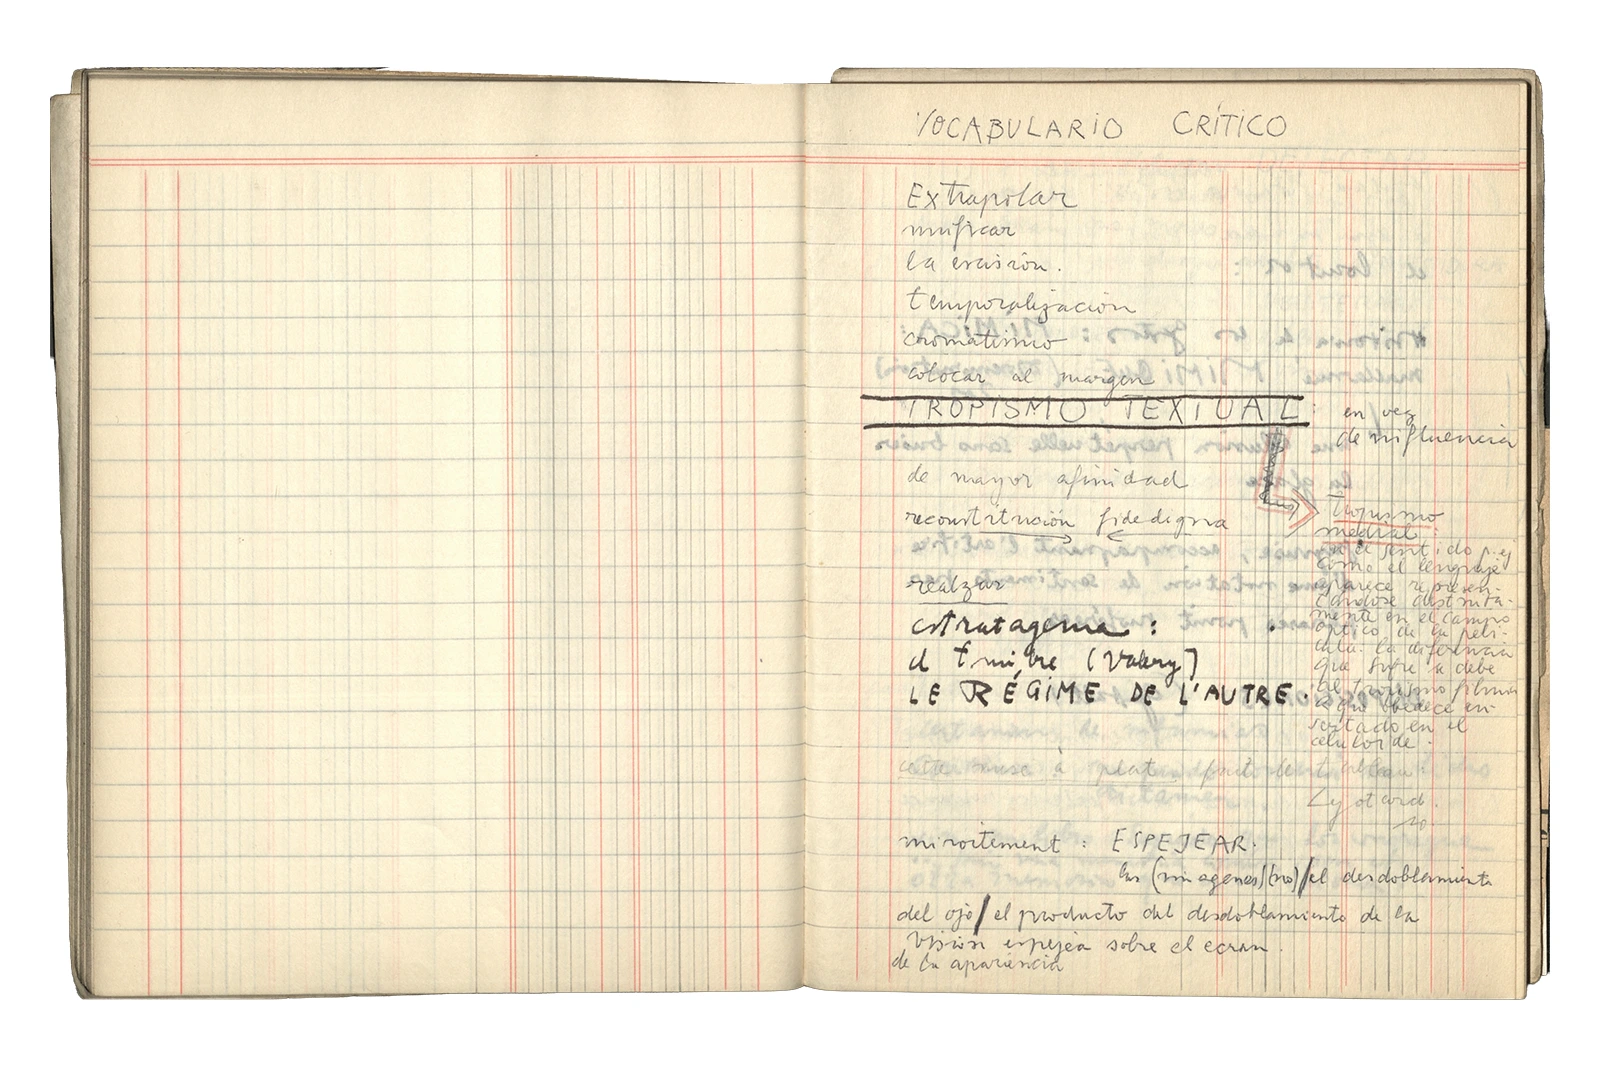 VOCABULARIO CRÍTICO
Extrapolar
unificar
la escisión.
temporalización
cromatismo
colocar al margen
TROPISMO TEXTUAL : en vez
de influencia
de mayor afinidad
reconstitución fidedigna
realzar
estratagema :
el timbre (Valery)
LE RÉGIME DE L'AUTRE.
tropismo
medial :
en el sentido p. ej
como el lenguaje
aparece represen-
tándose distinta-
mente en el campo
óptico de la pelí-
cula: la diferencia
que sufre se debe
al tropismo fílmico
a que obedece en-
sertado en el
celuloide.
cette mise à plat, fait le tableau:
Lyotard.
miroitement : ESPEJEAR.
las (imágenes) (no) / el desdoblamiento
del ojo / el producto del desdoblamiento de la
visión espejea sobre el ecran.
de la apariencia